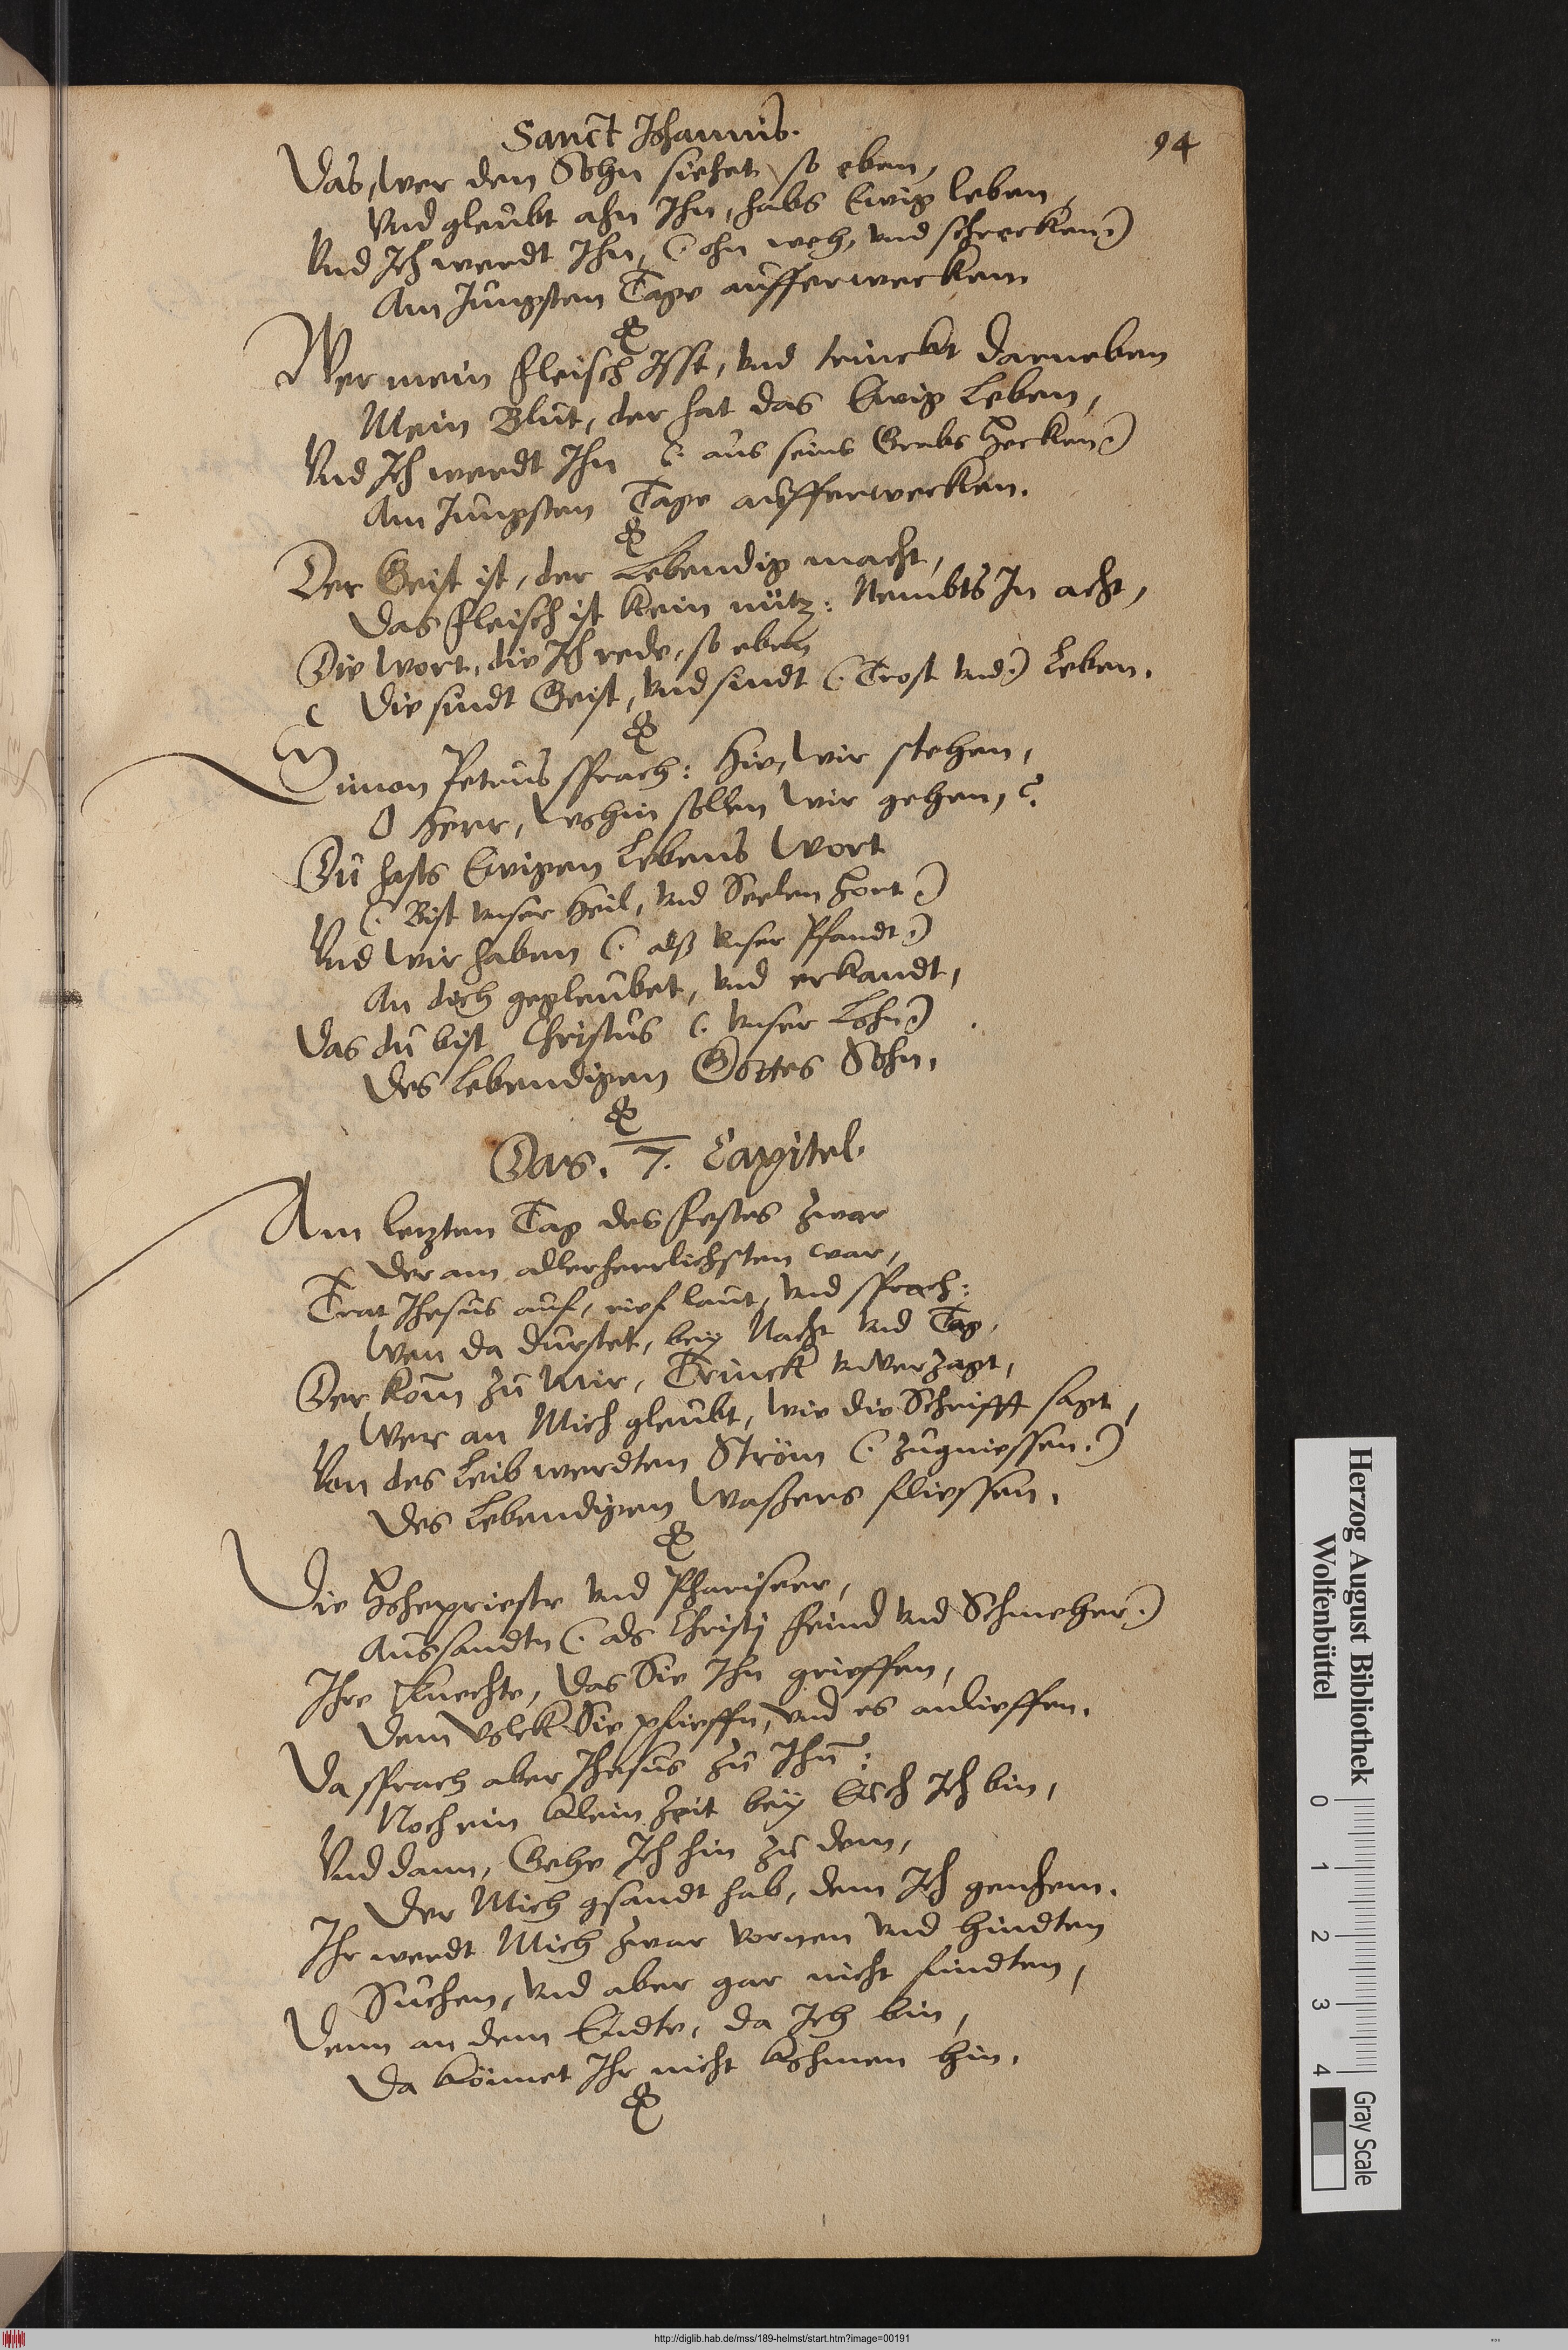 Sanct Johannis.
94
Das, wer den Sohn siehet, so eben,
Vnd gleubt ahn Ihn, habs Ewig leben,
Vnd Ich werdt Ihn, (: ohn weh, vnd schrecken :)
Am Jungsten Tage aufferwecken
Wer mein fleisch Isst, vnd trinckt darneben
Mein Blut, der hat das Ewig Leben,
Vnd Ich werdt Ihn (: aus seins Grabs Hecken :)
Am Jungsten Tage aufferwecken.
Der Geist ist, der Lebendig macht,
Das fleisch ist kein nütz: Nembts In acht,
Die Wort, die Ich rede, so eben
Die sindt Geist, vnd sindt (: Trost vnd :) Leben.
Simon Petrus sprach: Hie, wir stehen,
O Herr, Wohin sollen wir gehen,?
Du hasts Ewigen Lebens Wort
(: Bist vnser Heil, vnd Seelen Hort :)
Vnd wir haben (: alß vnser Pfandt :)
An dich gegleubet, vnd erkandt,
Das du bist Christus (: vnser Lohn :)
Des Lebendigen Gottes Sohn.
Das. 7. Capitel.
Am letzten Tag des festes zwar
Der am allerherrlichsten war,
Trat Jhesus auf, rief laut, vnd sprach:
Wen da dürstet, bey Nacht vnd Tag,
Der kom zu Mir, Trinck vnverzagt,
Wer an Mich gleubt, wie die Schrifft sagt,
Von des Leib werdten Ström (: zugniessen :)
Des Lebendigen Waßers fliessen.
Die Hohepriestr vnd Phariseer,
Aussandtn (: als Christj feind vnd Schmeher :)
Ihre Knechte, das Sie Ihn grieffen,
Dem Volck Sie pfieffn, vnd es anlieffen.
Da sprach aber Jhesus zu Ihn:
Noch ein klein Zeit bey Euch Ich bin,
Vnd dann, Gehe Ich hin zu dem,
Der Mich gsandt hab, dem Ich genehm.
Ihr werdt Mich zwar vornen vnd hindten
Suchen, vnd aber gar nicht findten,
Denn an dem Endte, da Ich bin,
Da könnet Ihr nicht kohmen hin.
Herzog August Bibliothek
Wolfenbüttel
0 1 2 3 4
Gray Scale
http://diglib.hab.de/mss/189-helmst/start.htm?image=00191